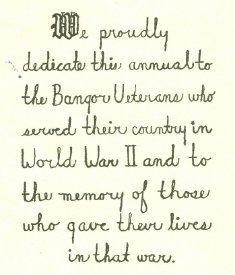 We proudly
dedicate this annual to
the Bangor Veterans who
served their country in
World War II and to
the memory of those
who gave their lives
in that war.